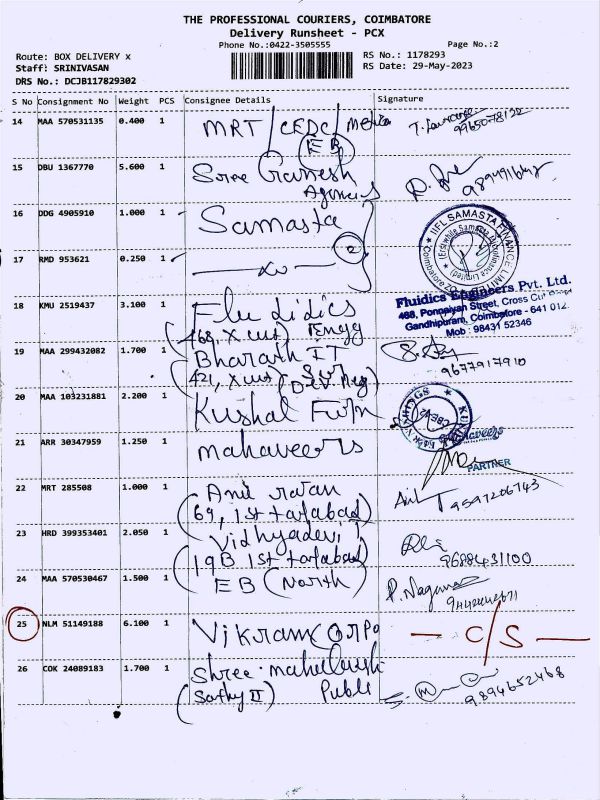 THE PROFESSIONAL COURIERS, COIMBATORE
Delivery Runsheet - PCX
Phone No.:0422-3505555
Page No.:2
Route: BOX DELIVERY x
RS No.: 1178293
Staff: SRINIVASAN
RS Date: 29-May-2023
DRS No.: DCJB117829302
S No Consignment No Weight PCS Consignee Details Signature
14 MAA 570531135 0.400 1 MRT/CEDC/
EB
9965078122
15 DBU 1367770 5.600 1 Sree Ganesh
Agencies
16 DDG 4905910 1.000 1 Samasta
IIFL SAMASTA FINANCE LIMITED
17 RMD 953621 0.250 1
2
Fluidics Engineers Pvt. Ltd.
468, Ponnaiyan Street, Cross Cut Road
Gandhipuram, Coimbatore - 641 012.
Mob : 98431 52346
18 KMU 2519437 3.100 1 Fluidics
(468, X cut) Engg
19 MAA 299432082 1.700 1 Bharath IT
(421, X cut)
9677917910
20 MAA 103231881 2.200 1 Kushal Furn
21 ARR 30347959 1.250 1 Mahaveers
PARTNER
22 MRT 285508 1.000 1 Anil ratan
69, 1st tatabad
Anil T 9597206743
23 HRD 399353401 2.050 1 Vidhyadevi T
19B 1st tatabad
9688431100
24 MAA 570530467 1.500 1 EB (North)
P. Nagama
25 NLM 51149188 6.100 1 Vikram Corpo
— C/S —
26 COK 24089183 1.700 1 Shree Mahalaxmi
(Sathy II) Publi
9894652468